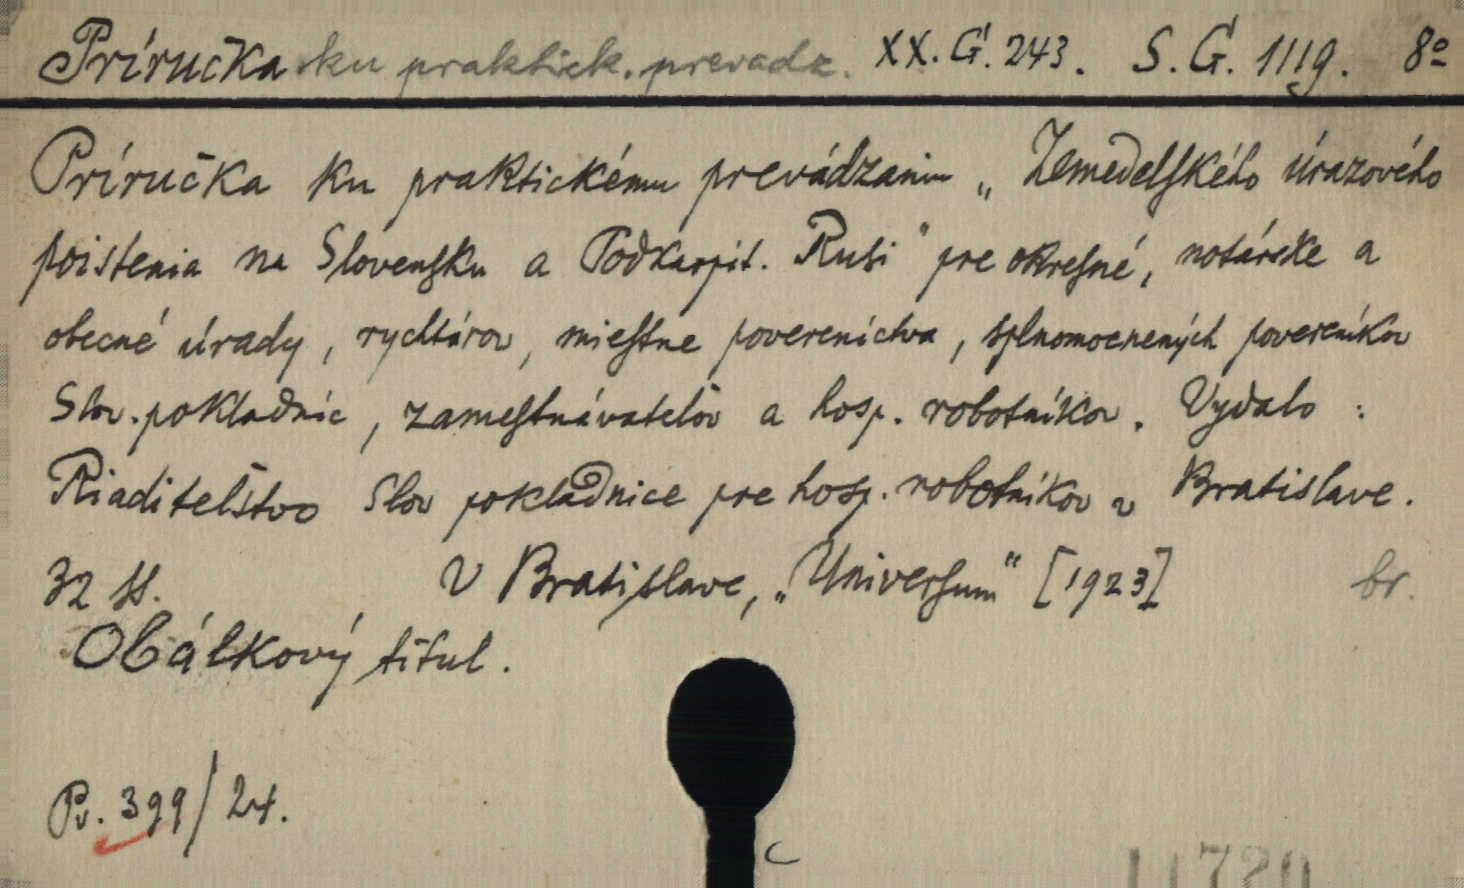 Príručka ku praktick. prevadz. XX. G. 243. S. G. 1119. 8º
Príručka ku praktickému prevádzaniu „Zemedelského úrazového
poistenia na Slovensku a Podkarpat. Rusi“ pre okresné, notárske a
obecné úrady, rychtárov, miestne povereníctva, splnomocnených povereníkov
Slov. pokladníc, zamestnávateľov a hosp. robotníkov. Vydalo:
Riaditeľstvo Slov pokladnice pre hosp. robotníkov v Bratislave.
32 ss. V Bratislave, „Universum“ [1923] br.
Obálkový titul.
Pv. 399/24.
11720